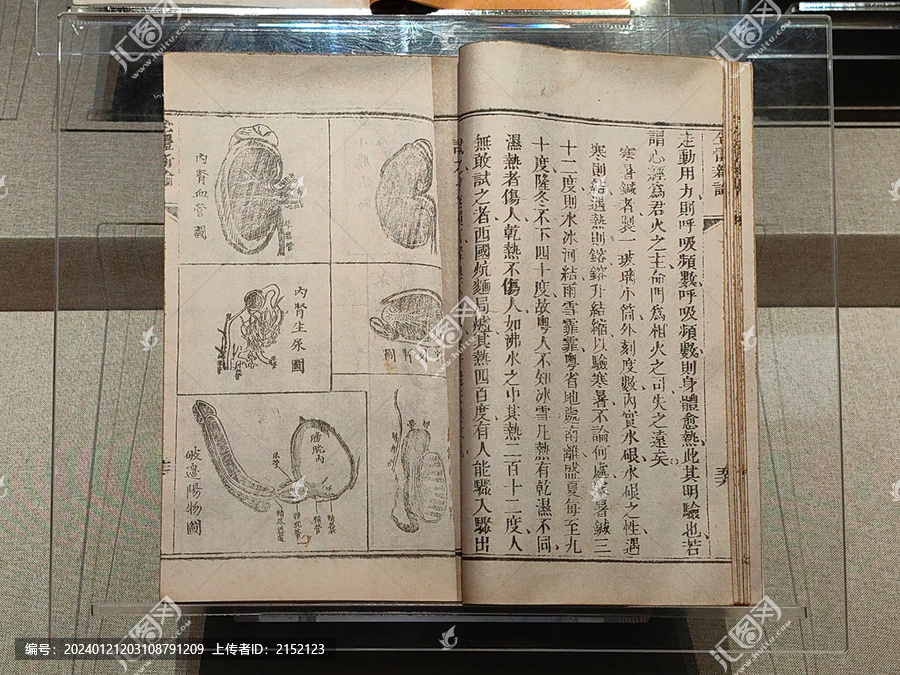 走動用力則呼吸頻數呼吸頻數則身體愈熱此其明驗也若
謂心經爲君火之主命門爲相火之司失之遠矣
寒暑鍼者製一玻璃小筒外刻度數內實水硍水硍之性遇
寒則結遇熱則鎔鎔升結縮以驗寒暑不論何處寒暑鍼三
十二度則水冰河結雨雪霏霏粵省地處的離盛夏每至九
十度隆冬不下四十度故粵人不知冰雪凡熱有乾濕不同
濕熱者傷人乾熱不傷人如沸水之中其熱二百十二度人
無敢試之者西國炕麵局爐其熱四百度有人能驟入驟出
全體新論
內腎血管圖
內腎生尿圖
破邊陽物圖
膀胱內
精囊
精管
編号：20240121203108791209 上传者ID：2152123
汇图网
www.huitu.com